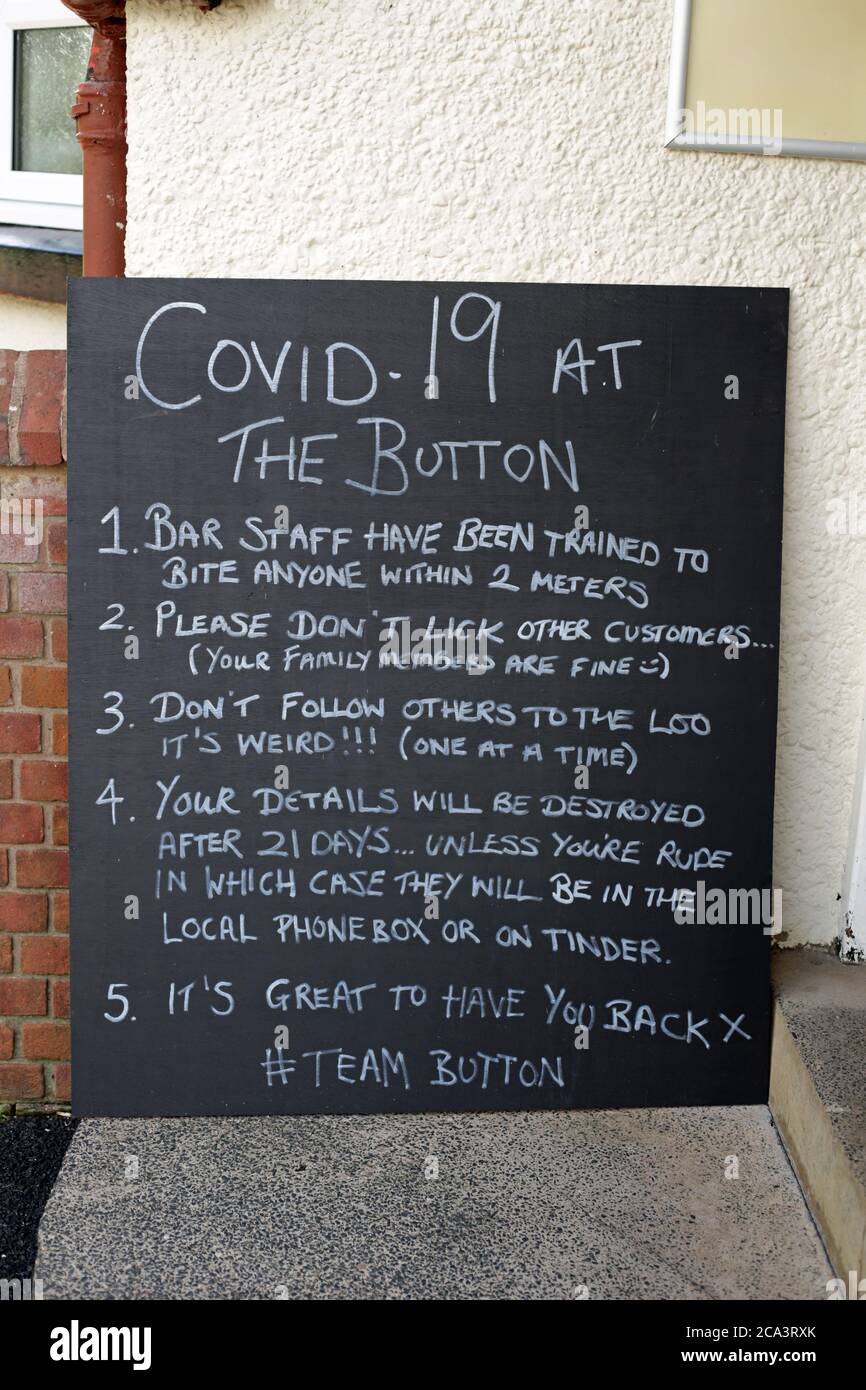 COVID-19 AT
THE BUTTON
1. BAR STAFF HAVE BEEN TRAINED TO
BITE ANYONE WITHIN 2 METERS
2. PLEASE DON'T LICK OTHER CUSTOMERS...
(YOUR FAMILY MEMBERS ARE FINE :))
3. DON'T FOLLOW OTHERS TO THE LOO
IT'S WEIRD!!! (ONE AT A TIME)
4. YOUR DETAILS WILL BE DESTROYED
AFTER 21 DAYS... UNLESS YOU'RE RUDE
IN WHICH CASE THEY WILL BE IN THE
LOCAL PHONE BOX OR ON TINDER.
5. IT'S GREAT TO HAVE YOU BACK X
#TEAM BUTTON
alamy
Image ID: 2CA3RXK
www.alamy.com